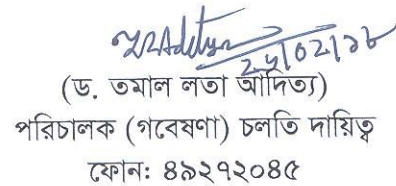 ২৬/০২/১৮
(ড. তমাল লতা আদিত্য)
পরিচালক (গবেষণা) চলতি দায়িত্ব
ফোন: ৪৯২৭২০৪৫